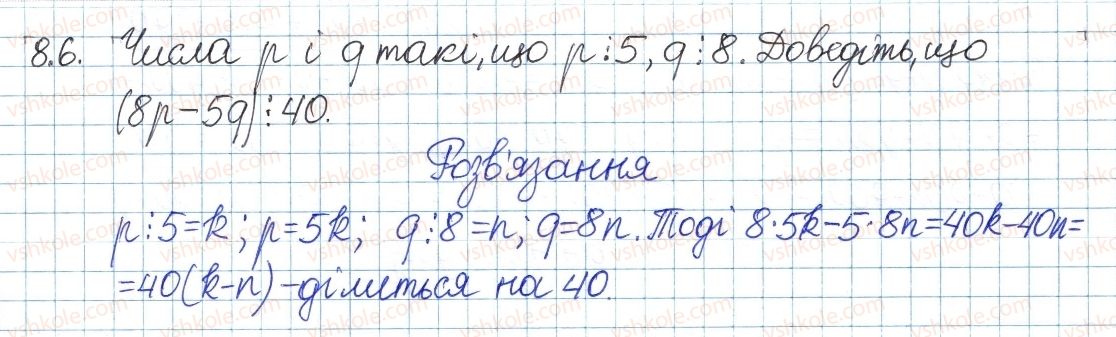 8.6. Числа p і q такі, що p⋮5, q⋮8. Доведіть, що
(8p−5q)⋮40.
Розв'язання
p:5=k; p=5k; q:8=n; q=8n. Тоді 8·5k−5·8n=40k−40n=
=40(k−n) − ділиться на 40.